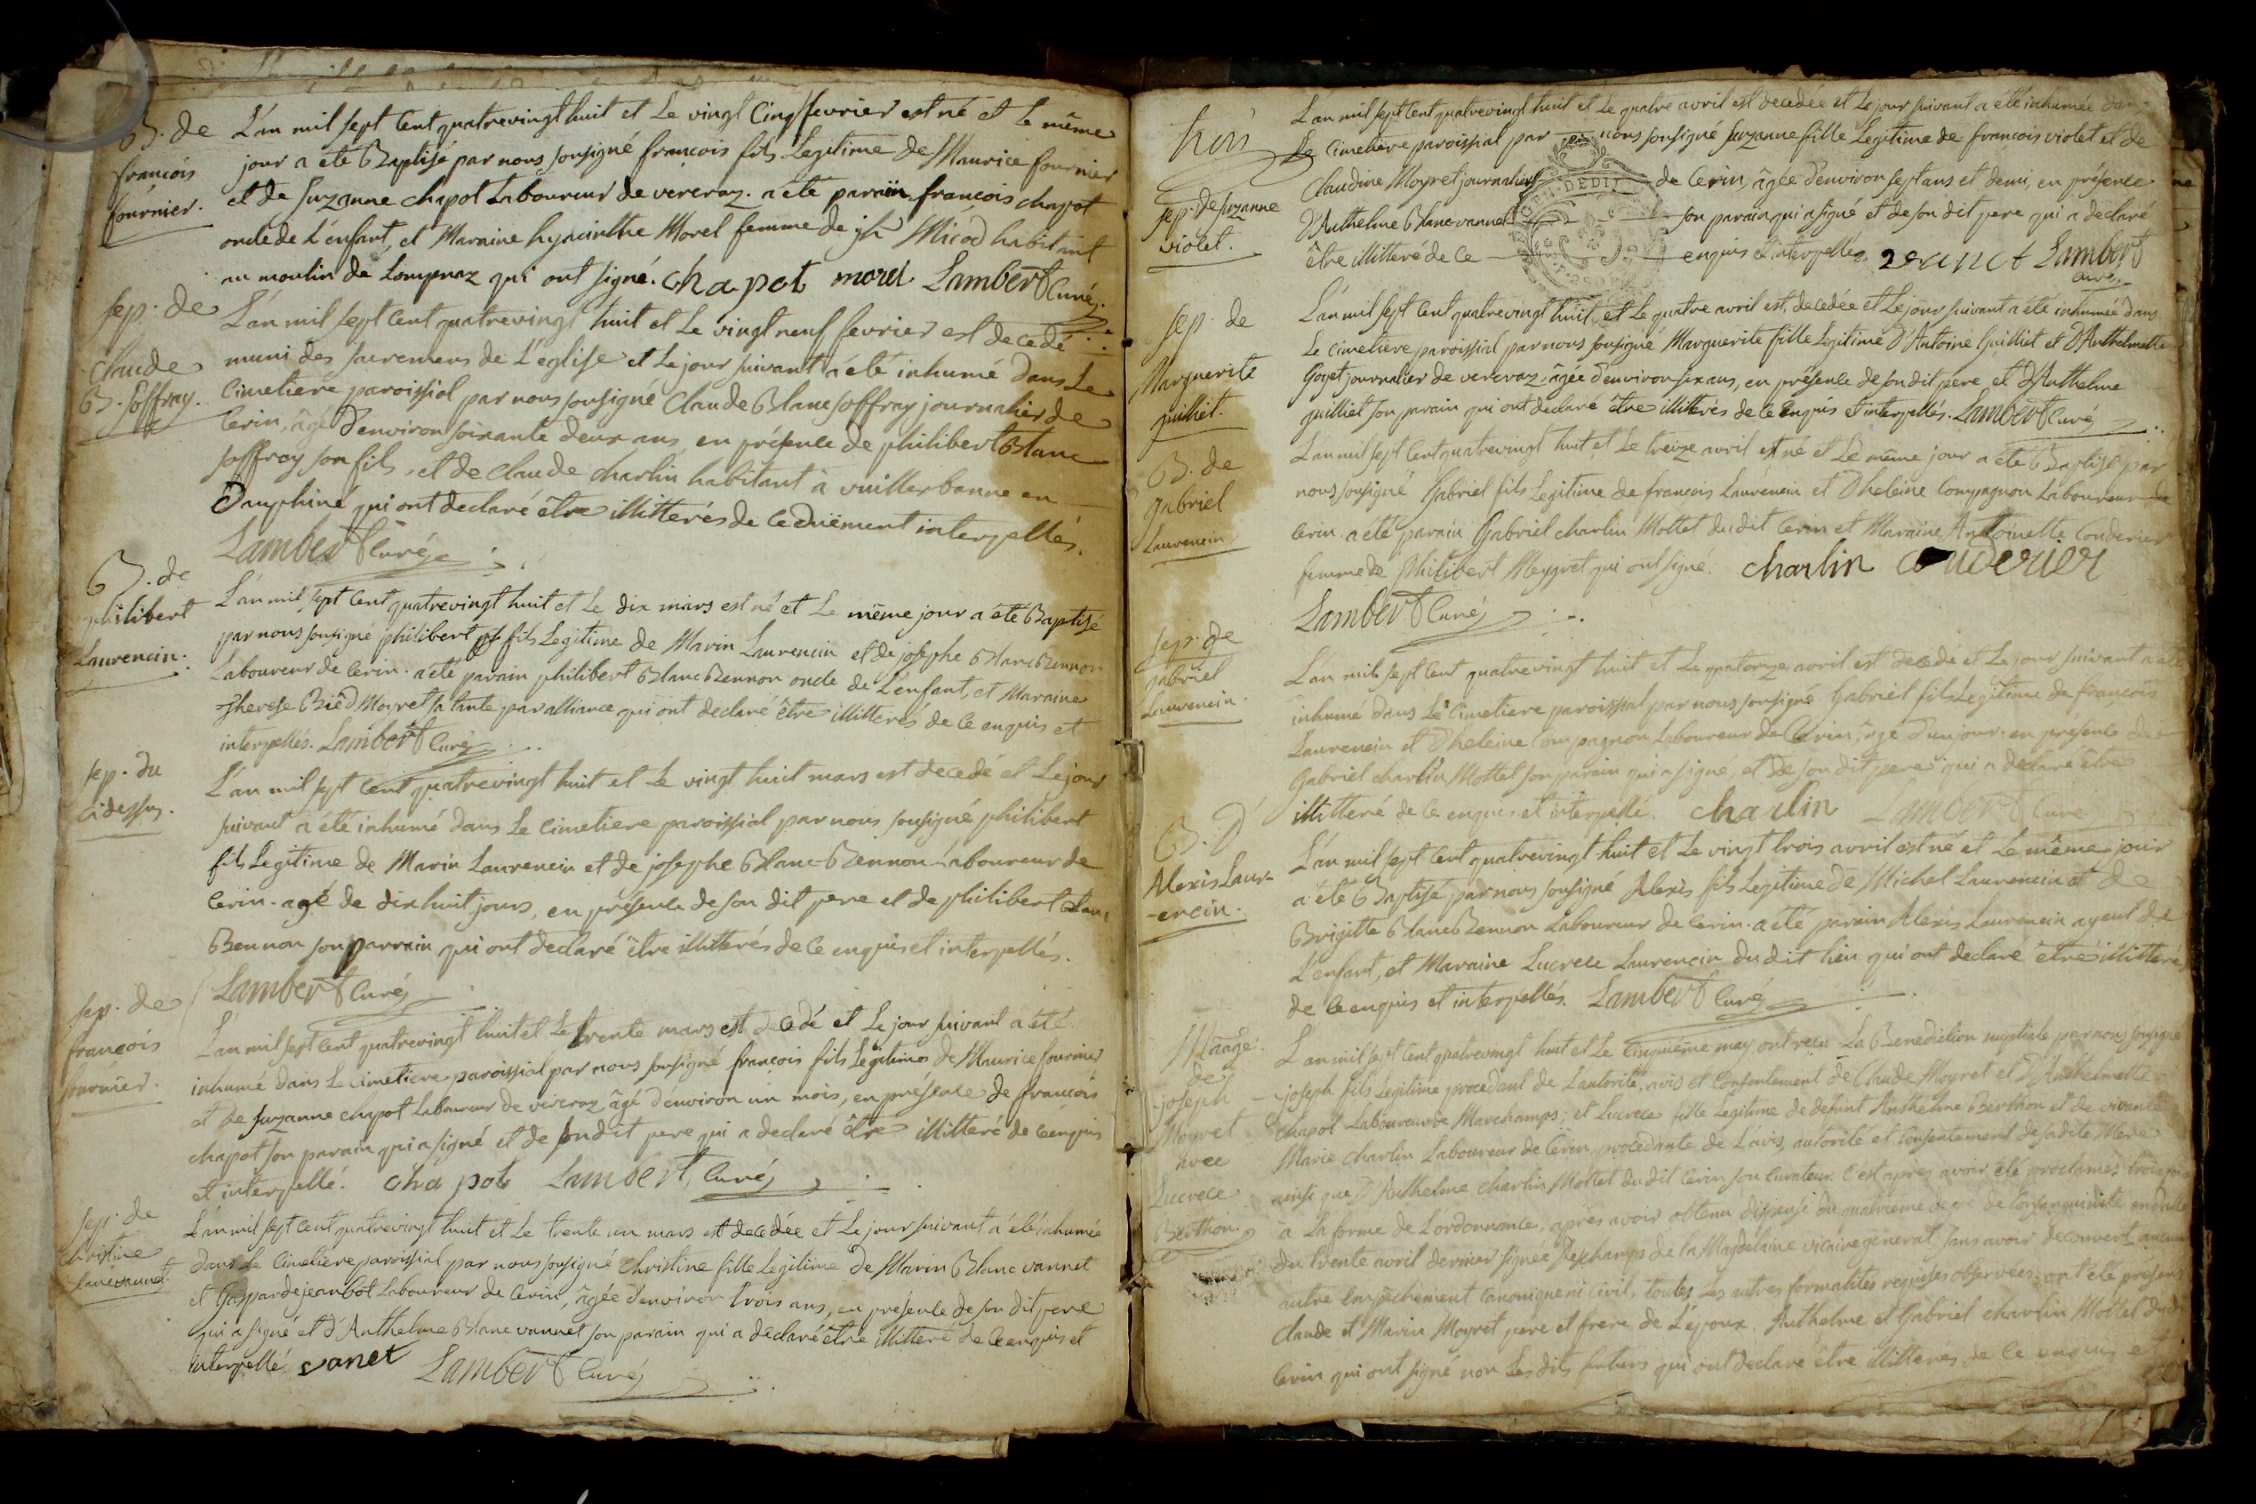 B. de
françois
fournier.
L'an mil sept Cent quatrevingt huit et Le vingt Cinq fevrier est né et Le même
jour a été Baptisé par nous sousigné francois fils Legitime de Maurice fournier
et de suzanne chapot Laboureur de vercraz. a été parain francois chapot
oncle de L'enfant, et Maraine hyacinthe Morel femme de jh Mirod habitant
au moulin de Lompnaz qui ont signé. chapot morel Lambert Curé.
sep. de
Claude
B. soffray.
L'an mil sept Cent quatrevingt huit et Le vingt neuf fevrier est decedé
muni des sacremens de L'eglise et Le jour suivant a été inhumé dans Le
Cimetiere paroissial par nous sousigné Claude Blanc soffray journalier de
Cerin, âgé d'environ soixante deux ans, en présence de philibert Blanc
soffray son fils, et de Claude charlin habitant à vuillerbanne en
Dauphiné qui ont declaré être illitterés de Ce duëment interpellés.
Lambert Curé
B. de
philibert
Laurencin.
L'an mil sept Cent quatrevingt huit et Le dix mars est né et Le même jour a été Baptisé
par nous sousigné philibert fils Legitime de Marin Laurencin et de josephe Blanc Bennon
Laboureur de Cerin. a été parain philibert Blanc Bennon oncle de L'enfant, et Maraine
Therese Bied Moyret sa tante par alliance qui ont declaré être illitterés de Ce enquis et
interpellés. Lambert Curé
sep. du
Cidessus.
L'an mil sept Cent quatrevingt huit et Le vingt huit mars est decedé et Le jour
suivant a été inhumé dans Le Cimetiere paroissial par nous sousigné philibert
fils Legitime de Marin Laurencin et de josephe Blanc Bennon Laboureur de
Cerin. agé de dix huit jours, en présence de son dit pere et de philibert Blanc
Bennon son parrain qui ont declaré être illitterés de Ce enquis et interpellés.
Lambert Curé
sep. de
françois
fournier.
L'an mil sept Cent quatrevingt huit et Le trente mars est decedé et Le jour suivant a été
inhumé dans Le Cimetiere paroissial par nous sousigné françois fils Legitime de Maurice fournier
et de suzanne chapot Laboureur de vercraz âgé d'environ un mois, en présence de francois
chapot son parain qui a signé et de son dit pere qui a declaré être illitteré de Ce enquis
et interpellé. chapot Lambert Curé
sep. de
Christine
Blanc vannet.
L'an mil sept Cent quatrevingt huit et Le trente un mars est decedée et Le jour suivant a été inhumée
dans Le Cimetiere paroissial par nous sousigné Christine fille Legitime de Marin Blanc vannet
et Gasparde jeanbot Laboureur de Cerin, âgée d'environ trois ans, en présence de son dit pere
qui a signé et d'Anthelme Blanc vannet son parain qui a declaré être illitteré de Ce enquis et
interpellé. vanet Lambert Curé
sep. de suzanne
violet.
L'an mil sept Cent quatrevingt huit et Le quatre avril est decedée et Le jour suivant a été inhumée dans
Le Cimetiere paroissial par nous sousigné suzanne fille Legitime de francois violet et de
Claudine Moyret journalier de Cerin, âgée d'environ sept ans et demi, en présence
d'Anthelme Blanc vannet son parain qui a signé et de son dit pere qui a declaré
être illitteré de Ce enquis et interpellé. Lambert
Curé
sep. de
Marguerite
guilliet.
L'an mil sept Cent quatrevingt huit et Le quatre avril est decedée et Le jour suivant a été inhumée dans
Le Cimetiere paroissial par nous sousigné Marguerite fille Legitime d'Antoine Guilliet et d'Anthelmette
Goyet journalier de vercraz, âgée d'environ six ans, en présence de son dit pere, et d'Anthelme
guilliet son parain qui ont declaré être illitterés de Ce enquis et interpellés. Lambert Curé
B. de
gabriel
Laurencin
L'an mil sept Cent quatrevingt huit et Le treize avril est né et Le même jour a été Baptisé par
nous sousigné Gabriel fils Legitime de francois Laurencin et d'heleine Compagnon Laboureur de
Cerin. a été parain Gabriel charlin Mottet du dit Cerin et Maraine Antoinette Couderier
femme de Philibert Meygret qui ont signé. charlin couderier
Lambert Curé
sep. de
gabriel
Laurencin.
L'an mil sept Cent quatrevingt huit et Le quatorze avril est decedé et Le jour suivant a été
inhumé dans Le Cimetiere paroissial par nous sousigné Gabriel fils Legitime de françois
Laurencin et d'heleine Compagnon Laboureur de Cerin, âgé d'un jour. en présence de
Gabriel charlin Mottet son parain qui a signé, et de son dit pere qui a declaré être
illitteré de Ce enquis et interpellé. charlin Lambert Curé
B. d'
Alexis Laur-
-encin.
L'an mil sept Cent quatrevingt huit et Le vingt trois avril est né et Le même jour
a été Baptisé par nous sousigné Alexis fils Legitime de Michel Laurencin et de
Brigitte Blanc Bennon Laboureur de Cerin. a été parain Alexis Laurencin ayeul de
L'enfant, et Maraine Lucrece Laurencin du dit lieu qui ont declaré être illitterés
de Ce enquis et interpellés. Lambert Curé
Mariage
de
joseph
Moyret
avec
Lucrece
Berthon.
L'an mil sept Cent quatrevingt huit et Le Cinquième may ont recu La Benediction nuptiale par nous sousigné
joseph fils Legitime procedant de L'autorité, avis et Consentement de Claude Moyret et d'Anthelmette
chapot Laboureur de Marchamps; et Lucrece fille Legitime de defunt Anthelme Berthon et de vivante
Marie charlin Laboureur de Cerin, procedante de L'avis, autorité et Consentement de sa dite Mere
ainsi que d'Anthelme charlin Mottet du dit Cerin son Curateur. C'est après avoir été proclamés trois fois
à La forme de L'ordonnance, après avoir obtenu dispense du quatrième degré de Consanguinité en datte
du trente avril dernier signée Deschamps de la Magdelaine vicaire general sans avoir decouvert aucun
autre empêchement Canonique ni Civil, toutes Les autres formalités requises observées; ont été présens
Claude et Marin Moyret pere et frere de L'époux. Anthelme et Gabriel charlin Mottet du dit
Cerin qui ont signé non Les dits futurs qui ont declaré être illitterés de Ce enquis et